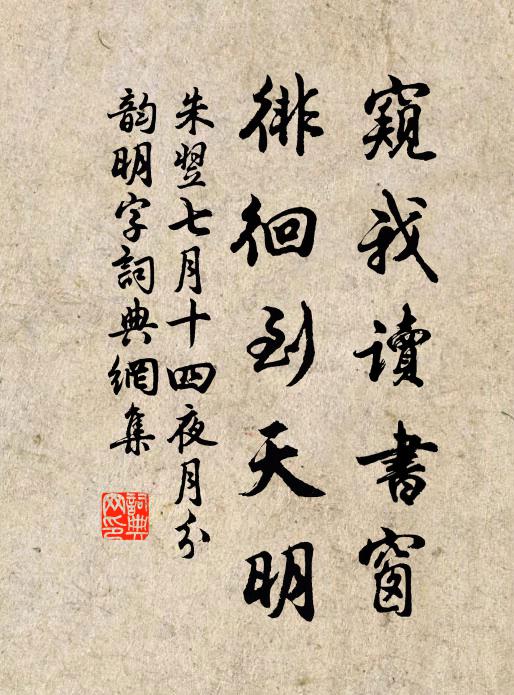 窺我讀書窗
徘徊到天明
朱翌七月十四夜月分
韵明字詞典網集
詞典網印